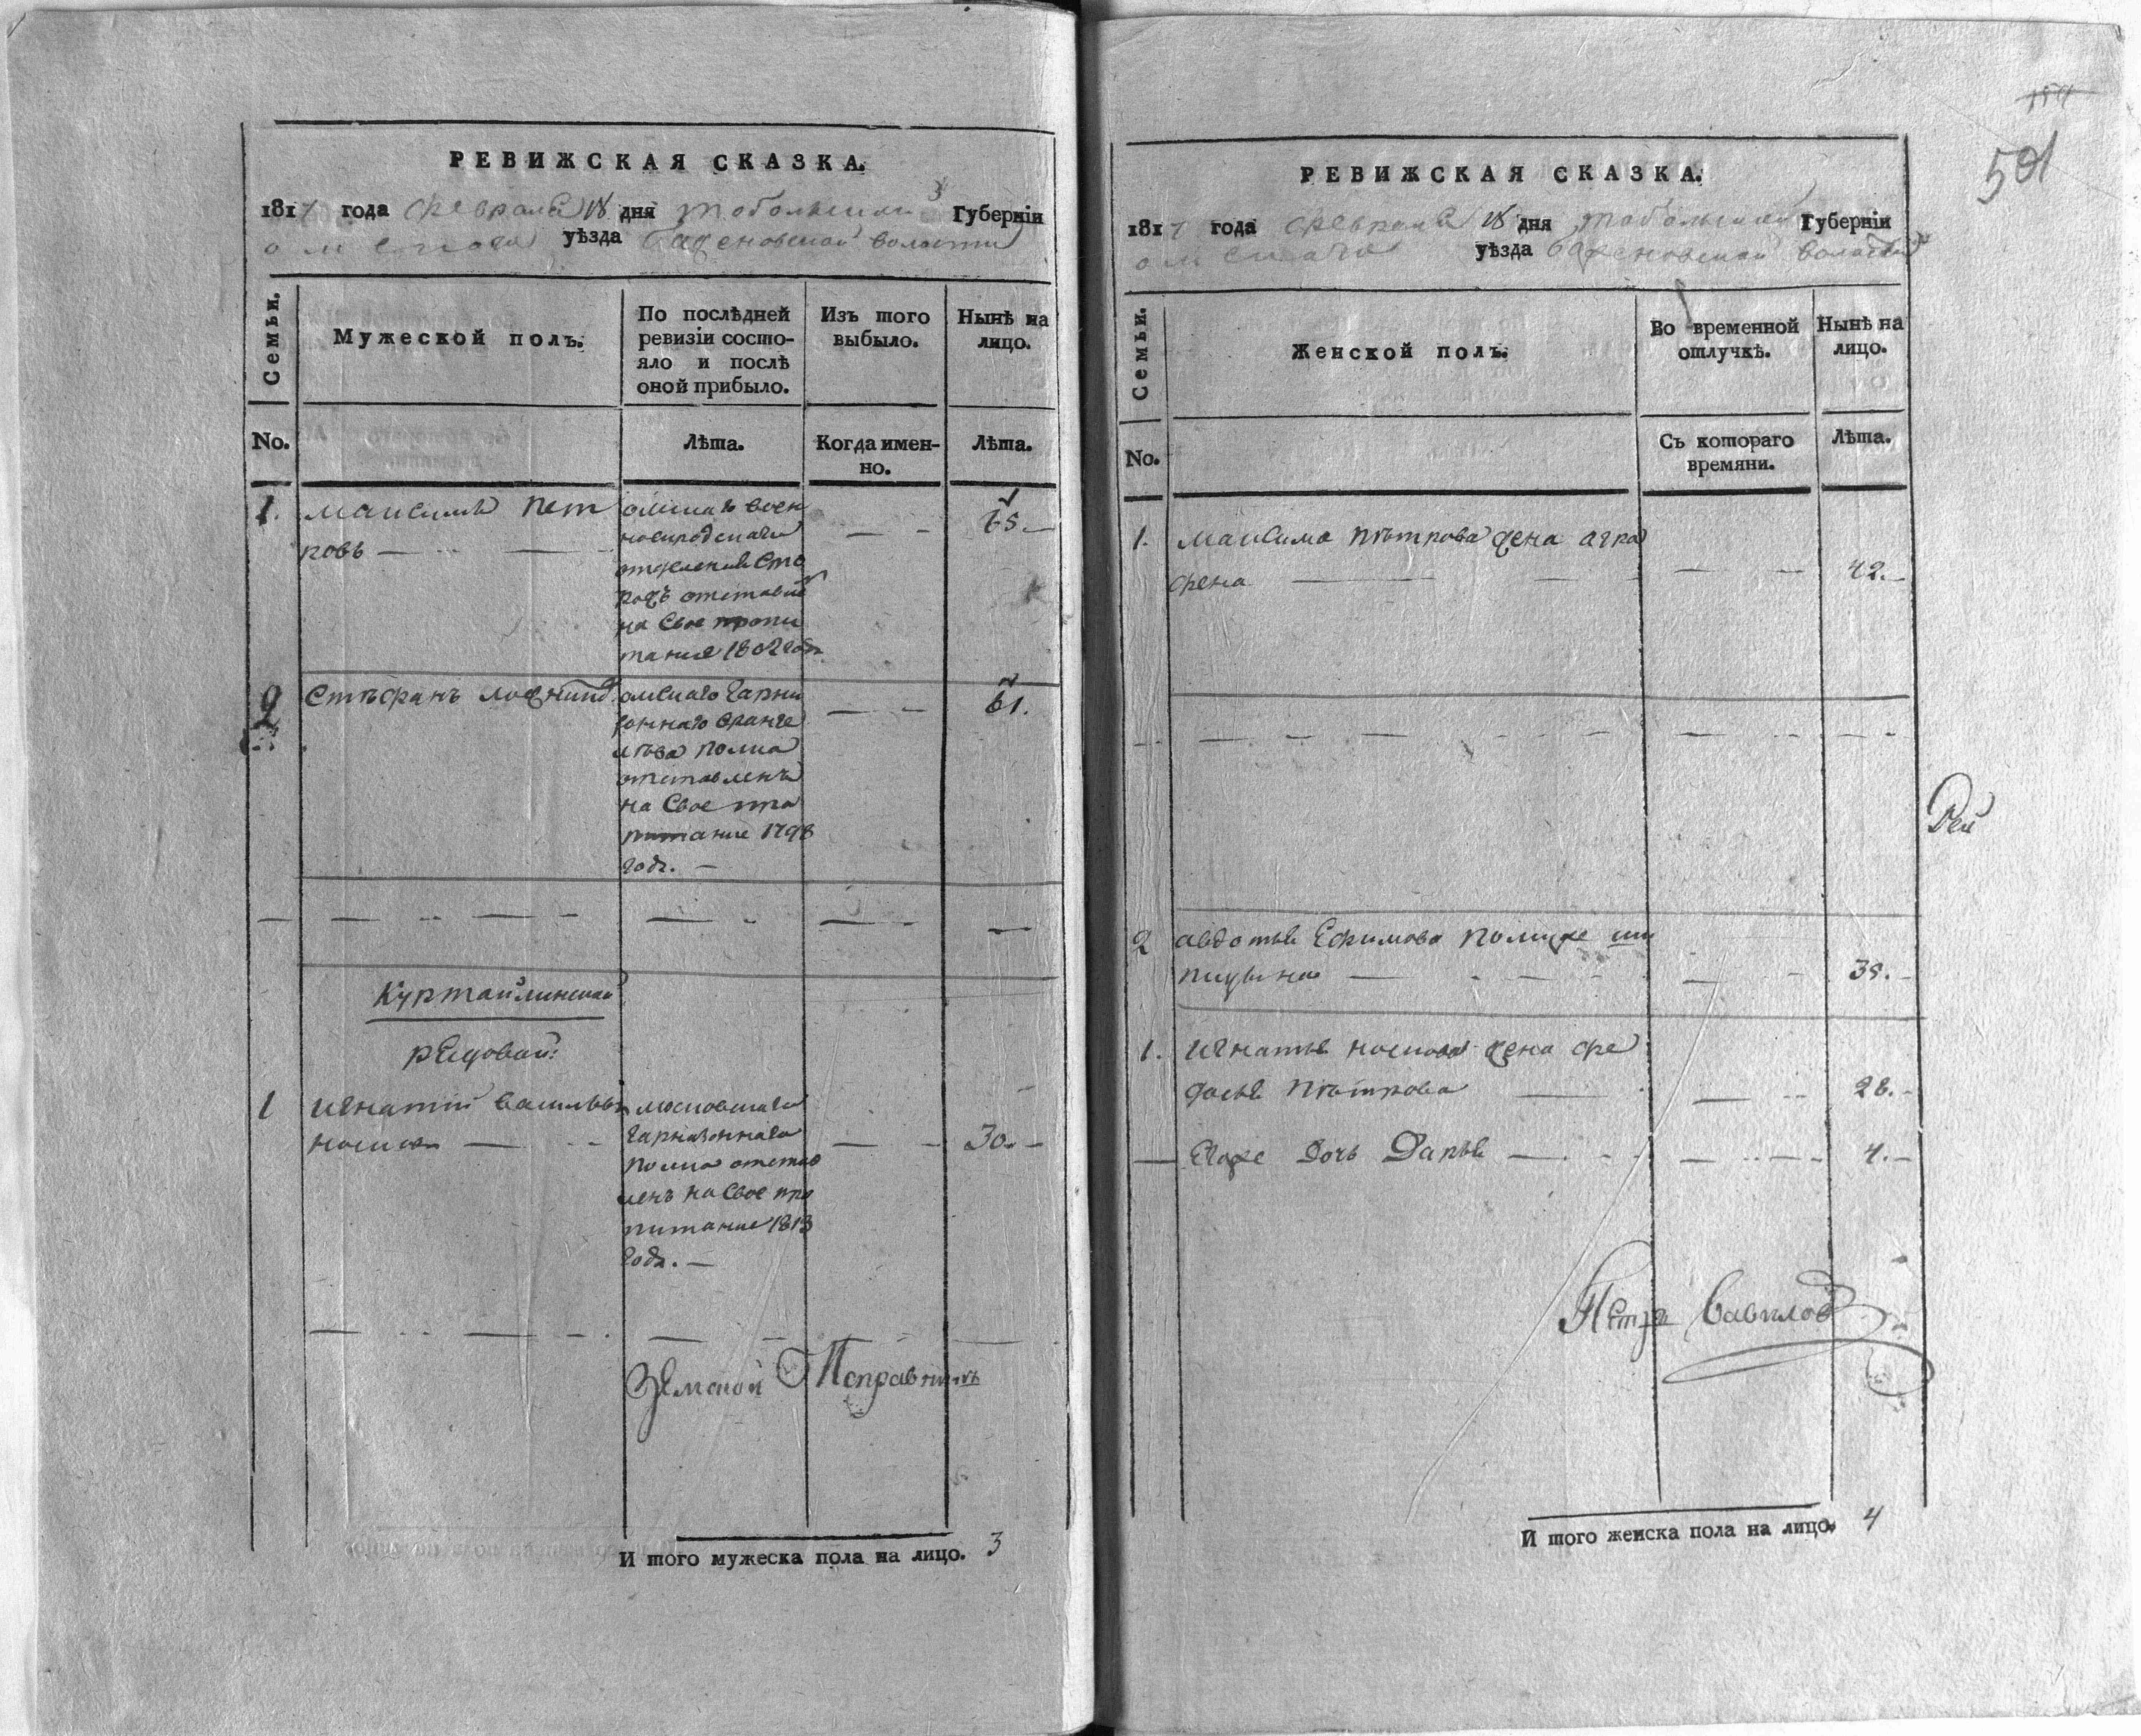 РЕВИЖСКАЯ СКАЗКА.
1817 года февраля 18 дня тобольской Губернiи
омскаго уѣзда баженовской волости
Семьи.
Мужеской полъ.
По послѣдней
ревизiи состо-
яло и послѣ
оной прибыло.
Изъ того
выбыло.
Нынѣ на
лицо.
No.
Лѣта.
Когда имен-
но.
Лѣта.
1. максимъ пет
ровъ
65.
омскаго воен
носиродскаго
отделения сто
рожъ отставле
на свое пропи
тание 1802 годе
2 Стефанъ
61.
омскаго гарни
зоннаго
полка
отставленъ
на свое про
питание 1798
годе.
Куртайлинской
редовой:
1 игнатий василье
носков
30.
московскаго
гарнизоннаго
полка отстав
ленъ на свое про
питание 1813
годе.
Земской Исправникъ
И того мужеска пола на лицо. 3
501
РЕВИЖСКАЯ СКАЗКА.
1817 года февраля 18 дня тобольской Губернiи
омскаго уѣзда баженовской волости
Семьи.
Женской полъ.
Во временной
отлучкѣ.
Нынѣ на
лицо.
No.
Съ котораго
времяни.
Лѣта.
1. максима петрова жена агра
фена 42.
Дей
2 авдотья Ефимова
пицына 38.
1. игнатья носкова жена фе
досья петрова 28.
Егоже дочь Дарья 4.
Петръ Вавилов
И того женска пола на лицо. 4